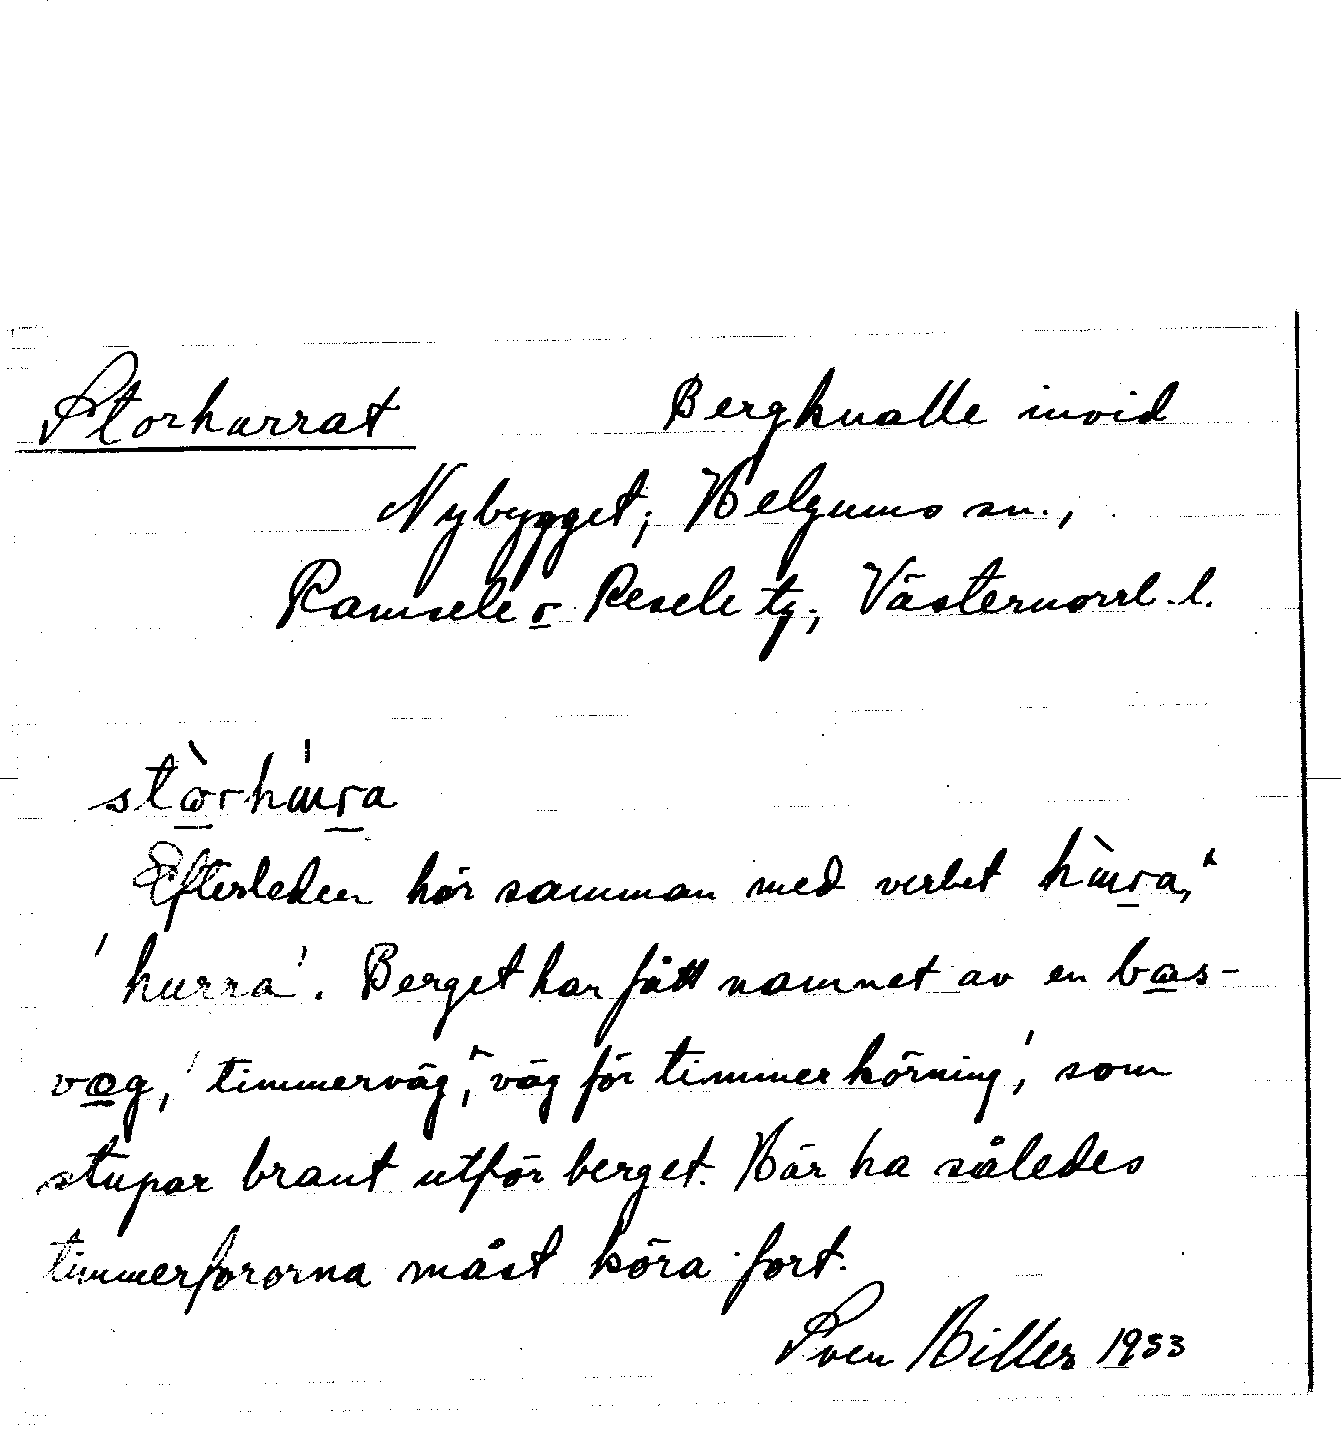 Storhurrat Bergknalle invid
Nybygget, Helgums sn.,
Ramsele o Resele tg, Västernorrl. l.
stòrhúra
Efterleden hör samman med verbet hùra,
'hurra'. Berget har fått namnet av en bas-
vag, 'timmerväg, väg för timmerkörning', som
stupar brant utför berget. Här ha således
timmerfororna måst köra fort.
Sven Hiller 1933